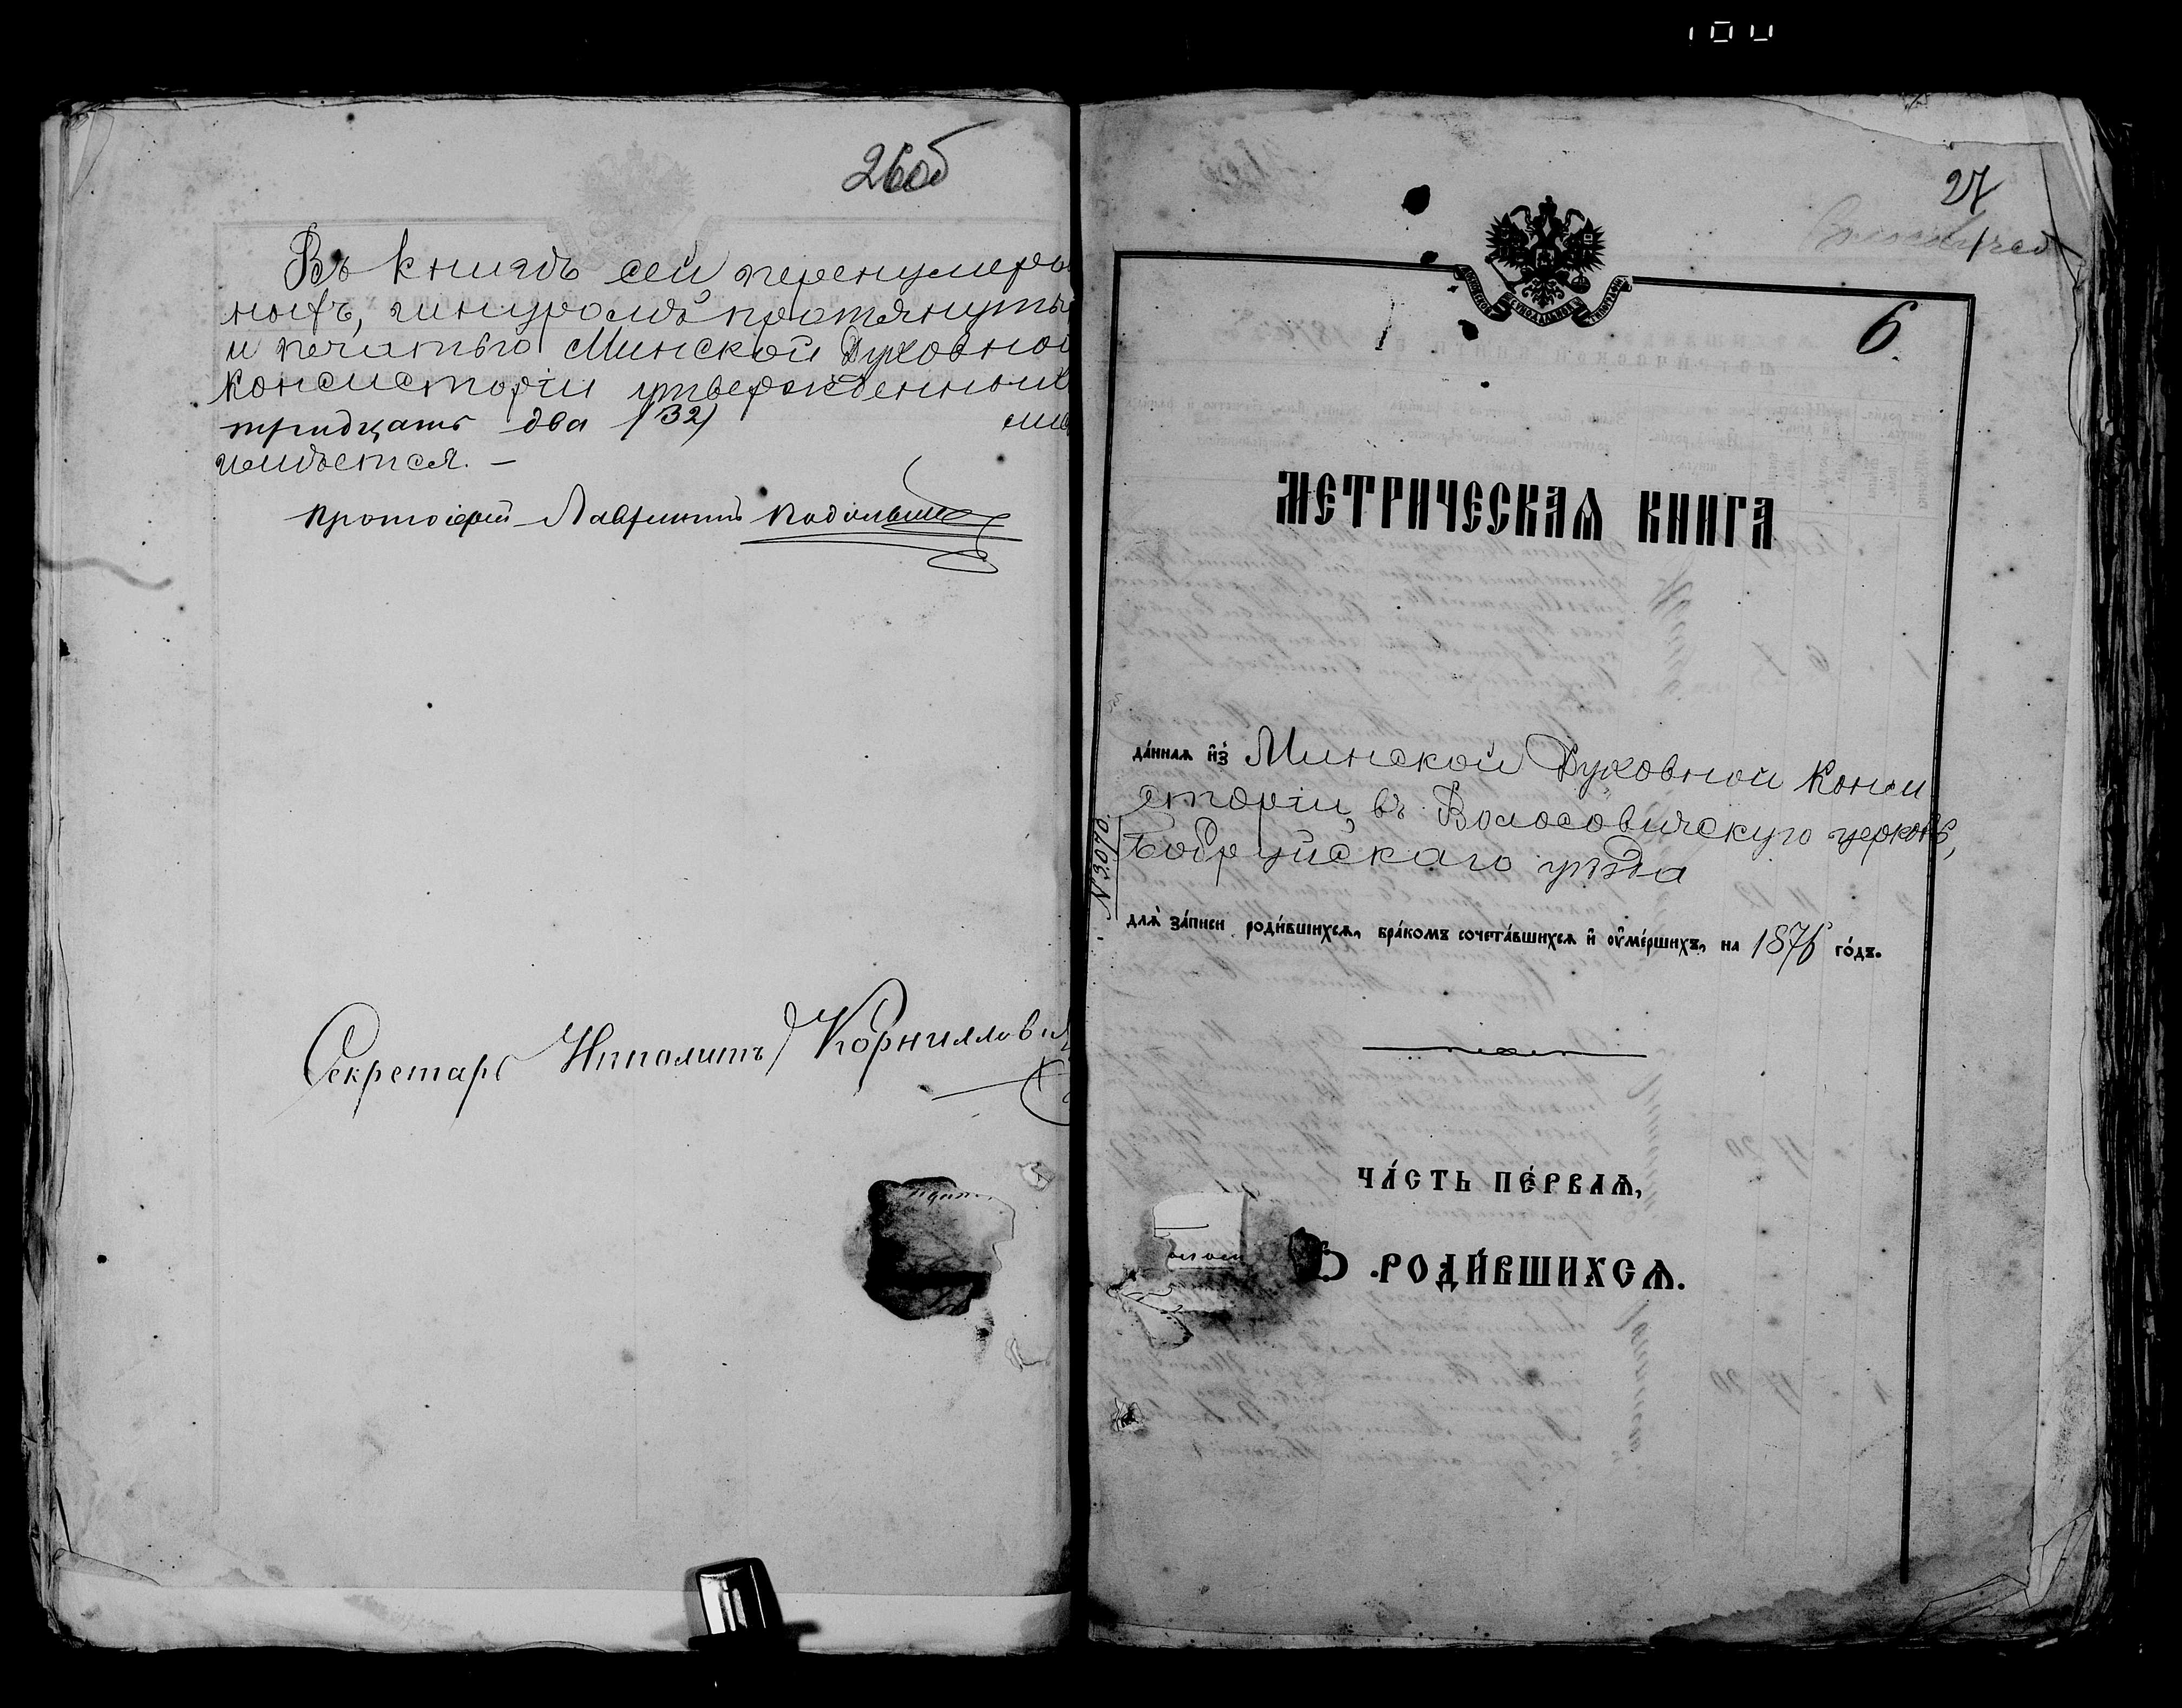 26об
Въ книгѣ сей перенумеро
ныхъ, шнуромъ протянуты
и печатью Минской Духовной
Консисторіи утвержденных
тридцать два /32/ лис
имѣется. —
Протоіерей Лаврентій
Секретарь Ипполитъ Корнилови
27
6.
МЕТРИЧЕСКАѦ КНИГА
да́ннаѧ и҆з̾ Минской Духовной Конси
сторіи, въ Волосовичскую церковь,
Бобруйскаго уѣзда
№ 3070
длѧ̀ за́писи роди́вшихсѧ, бра́комъ сочета́вшихсѧ и҆ ᲂу҆ме́ршихъ, на 1876 го́дъ.
ЧА́СТЬ ПЕ́РВАѦ,
Ѡ РОДИ́ВШИХСѦ.